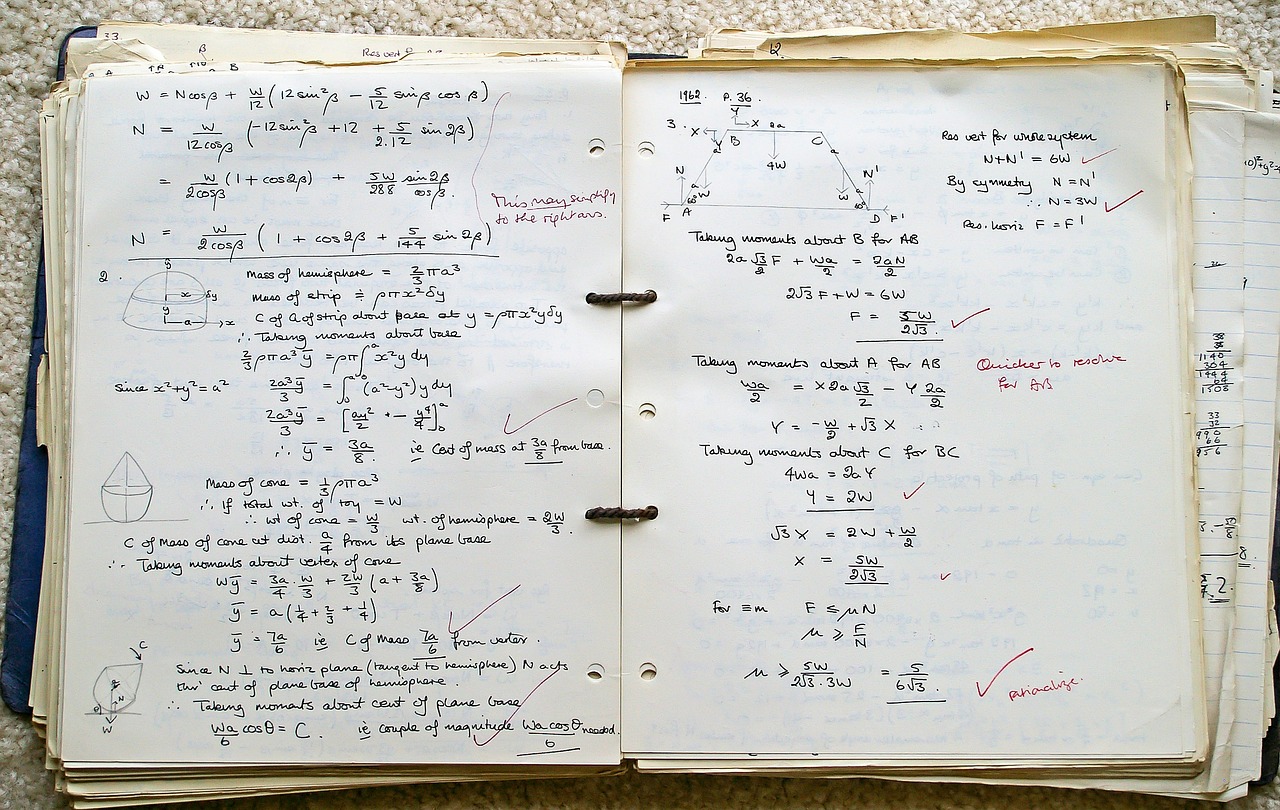 33.
β
Res vert
B
W = Ncosβ + W/12 (12sin²β − 5/12 sinβ cosβ)
N = W/12cosβ (−12sin²β + 12 + 5/2.12 sin2β)
= W/2cosβ (1 + cos2β) + 5W/288 sin2β/cosβ.
This may simplify
to the right ans.
N = W/2cosβ (1 + cos2β + 5/144 sin2β)
2.
y
x δy
y
a x
Mass of hemisphere = 2/3 πa³
Mass of strip ≑ ρπx²δy
C of G of strip about base at y = ρπx²yδy
∴ Taking moments about base
2/3 ρπa³ȳ = ρπ∫₀ᵃ x²y dy
Since x²+y²=a² 2a³ȳ/3 = ∫₀ᵃ (a²−y²)y dy
2a³ȳ/3 = [ay²/2 − y⁴/4]₀ᵃ
∴ ȳ = 3a/8 ie Cent of mass at 3a/8 from base.
Mass of cone = 1/3 ρπa³
∴ If total wt. of toy = W
∴ wt of cone = W/3 wt. of hemisphere = 2W/3.
C of Mass of cone at dist. a/4 from its plane base
∴ Taking moments about vertex of cone
Wȳ = 3a/4 · W/3 + 2W/3 (a + 3a/8)
ȳ = a(1/4 + 2/3 + 1/4)
ȳ = 7a/6 ie C of Mass 7a/6 from vertex.
C
N
θ
W
Since N ⊥ to horiz plane (tangent to hemisphere) N acts
thro' cent of plane base of hemisphere.
∴ Taking moments about cent of plane base
Wa/6 cosθ = C. ie couple of magnitude Wa cosθ/6 needed.
12.
1962. P.36.
Y
3. X X 2a
Y B C
a 4W a
N N'
a W W a
60° 60°
F A D F'
Res vert for whole system
N+N' = 6W
By symmetry N = N'
∴ N = 3W
Res. horiz F = F'
Taking moments about B for AB
2a √3/2 F + Wa/2 = 2aN/2
2√3 F + W = 6W
F = 5W/2√3.
Taking moments about A for AB
Quicker to resolve
for AB
Wa/2 = X2a√3/2 − Y 2a/2
Y = −W/2 + √3 X
Taking moments about C for BC
4Wa = 2aY
Y = 2W
√3 X = 2W + W/2
X = 5W/2√3
For ≡m F ≤ μN
μ ≥ F/N
μ ≥ 5W/2√3.3W = 5/6√3.
rationalize.
38
38
1140
304
1444
64
1508
33
32
990
66
956
8.
2.